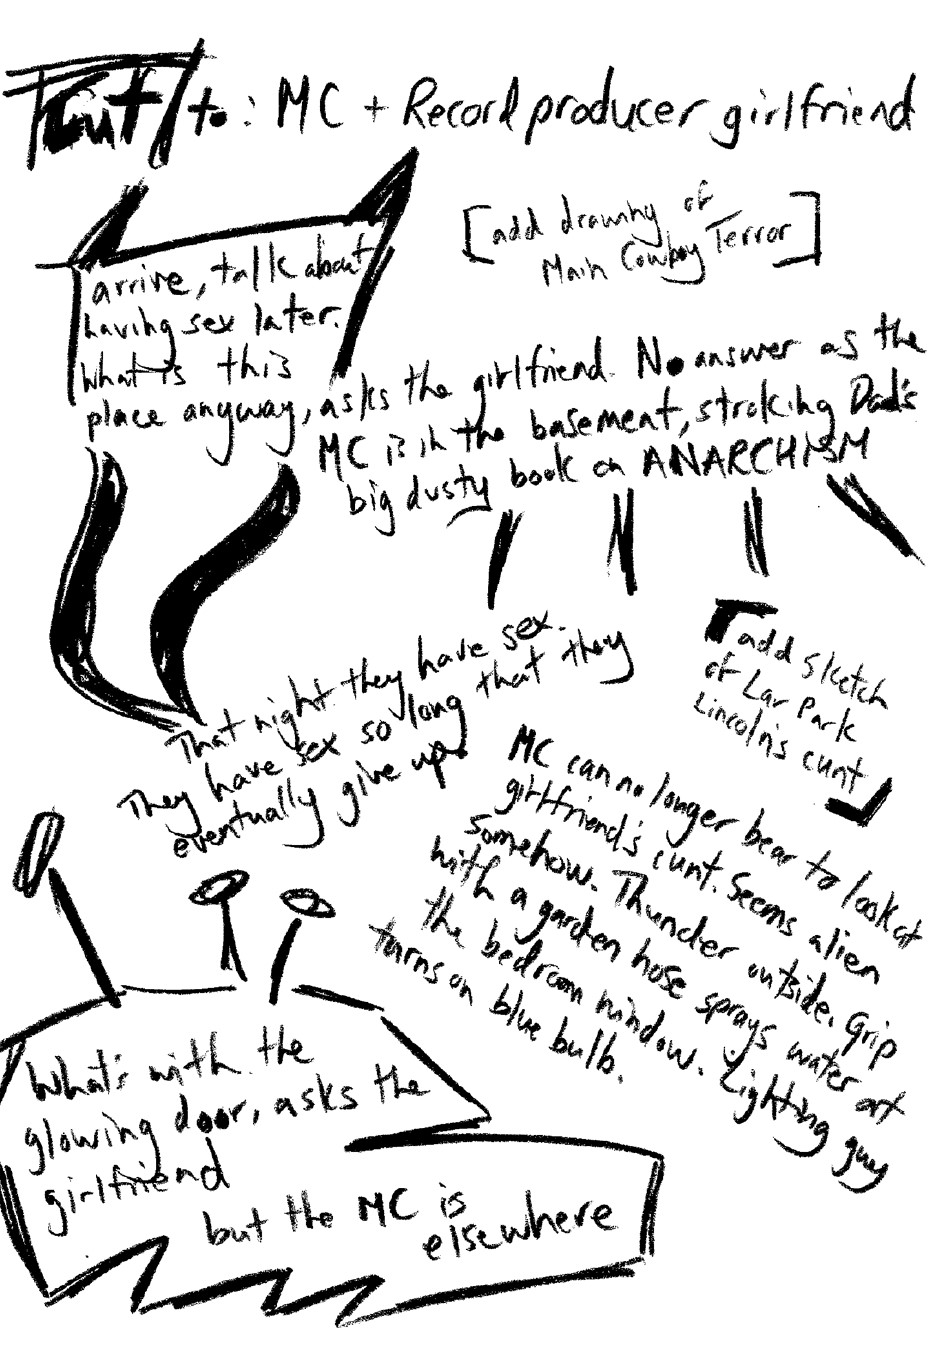 Cut to: MC + Record producer girlfriend
[add drawing of
Main Cowboy Terror]
arrive, talk about
having sex later.
What is this
place anyway, asks the girlfriend. No answer as the
MC is in the basement, stroking Dad's
big dusty book on ANARCHISM
That night they have sex.
They have sex so long that they
eventually give up.
[add sketch
of Lar Park
Lincoln's cunt]
MC can no longer bear to look at
girlfriend's cunt. Seems alien
somehow. Thunder outside. Grip
with a garden hose sprays water at
the bedroom window. Lighting guy
turns on blue bulb.
What's with the
glowing door, asks the
girlfriend
but the MC is
elsewhere